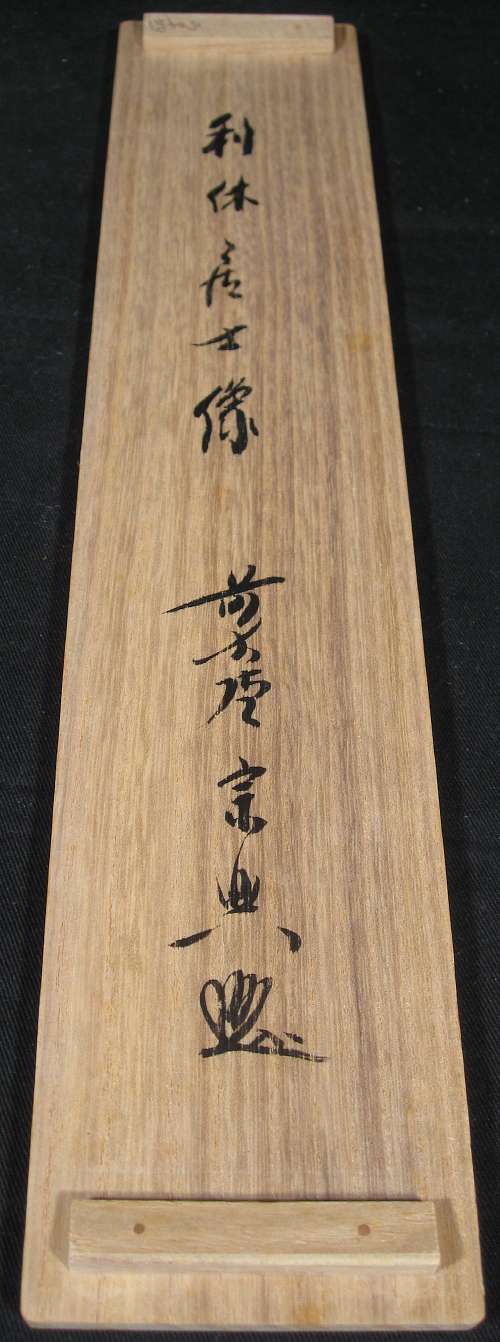 利休居士像
前大徳宗典